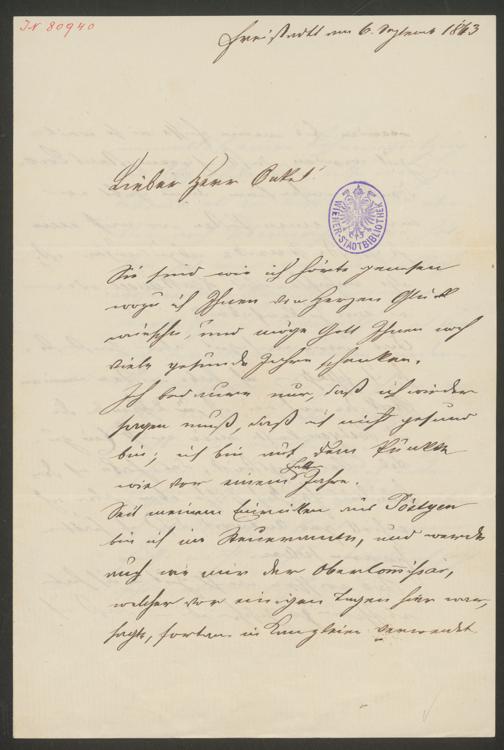 IN 80940
Freistadtl am 6. Septemb 1863
Lieber Herr Onkel!
WIENER-STADTBIBLIOTHEK
Sie sind wie ich hörte genesen
wozu ich Ihnen von Herzen Glück
wünsche, und möge Gott Ihnen noch
viele gesunde Jahre schenken.
Ich bedaure nur, daß ich wieder
sagen muß, daß ich nicht gesund
bin; ich bin auf dem Punkte
wie vor einem halben Jahre.
Seit meinem Einrücken aus Pöstyen
bin ich im Steueramte, und werde
auch wie mir der Obercommissär,
welcher vor einigen Tagen hier war,
sagte, fortan in Kanzleien verwendet